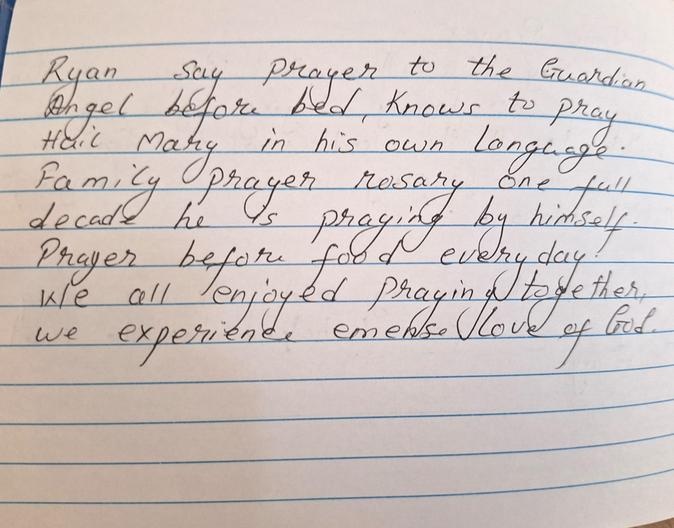 Ryan say prayer to the Guardian
Angel before bed, Knows to pray
Hail Mary in his own language.
Family prayer rosary one full
decade he is praying by himself.
Prayer before food everyday!
We all enjoyed praying together,
we experience emense love of God.